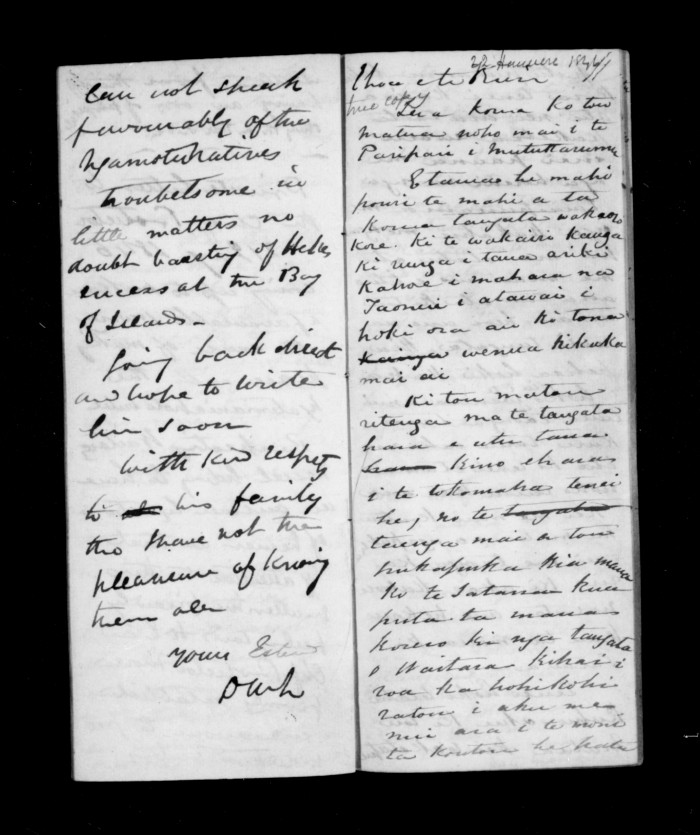 Can not speak
favourably of the
Ngamotu Natives
troubelsome in
little matters no
doubt boasting of Hekes
sucess at the Bay
of Islands -
Going back direct
and hope to write
him soon
With kind respects
to his family
tho I have not the
pleasure of knowing
them all
yours
22 Hanuere 1846
E hoa e te
true copy
kona ko tou
matua noho mai i te
Paripari i
E tama he mahi
pouri te mahi a ta
korua tangata
kore. Ki te wakairi kanga
ki runga i tana ariki
Kahore i mahara na
i atawai i
hoki ora ai ki tona
kainga wenua
mai ai
Ki tou matou
ritenga ma te tangata
hara e utu tana
kino ehara
i te tokomaha tenei
he, no te tangata
taenga mai a tou
pukapuka kia
ko te Satana kua
puta ta
korero ki nga tangata
o Waitara kihai i
roa ka kohikohi
ratou i aku mea
nui ara i te moni
ta koutou he